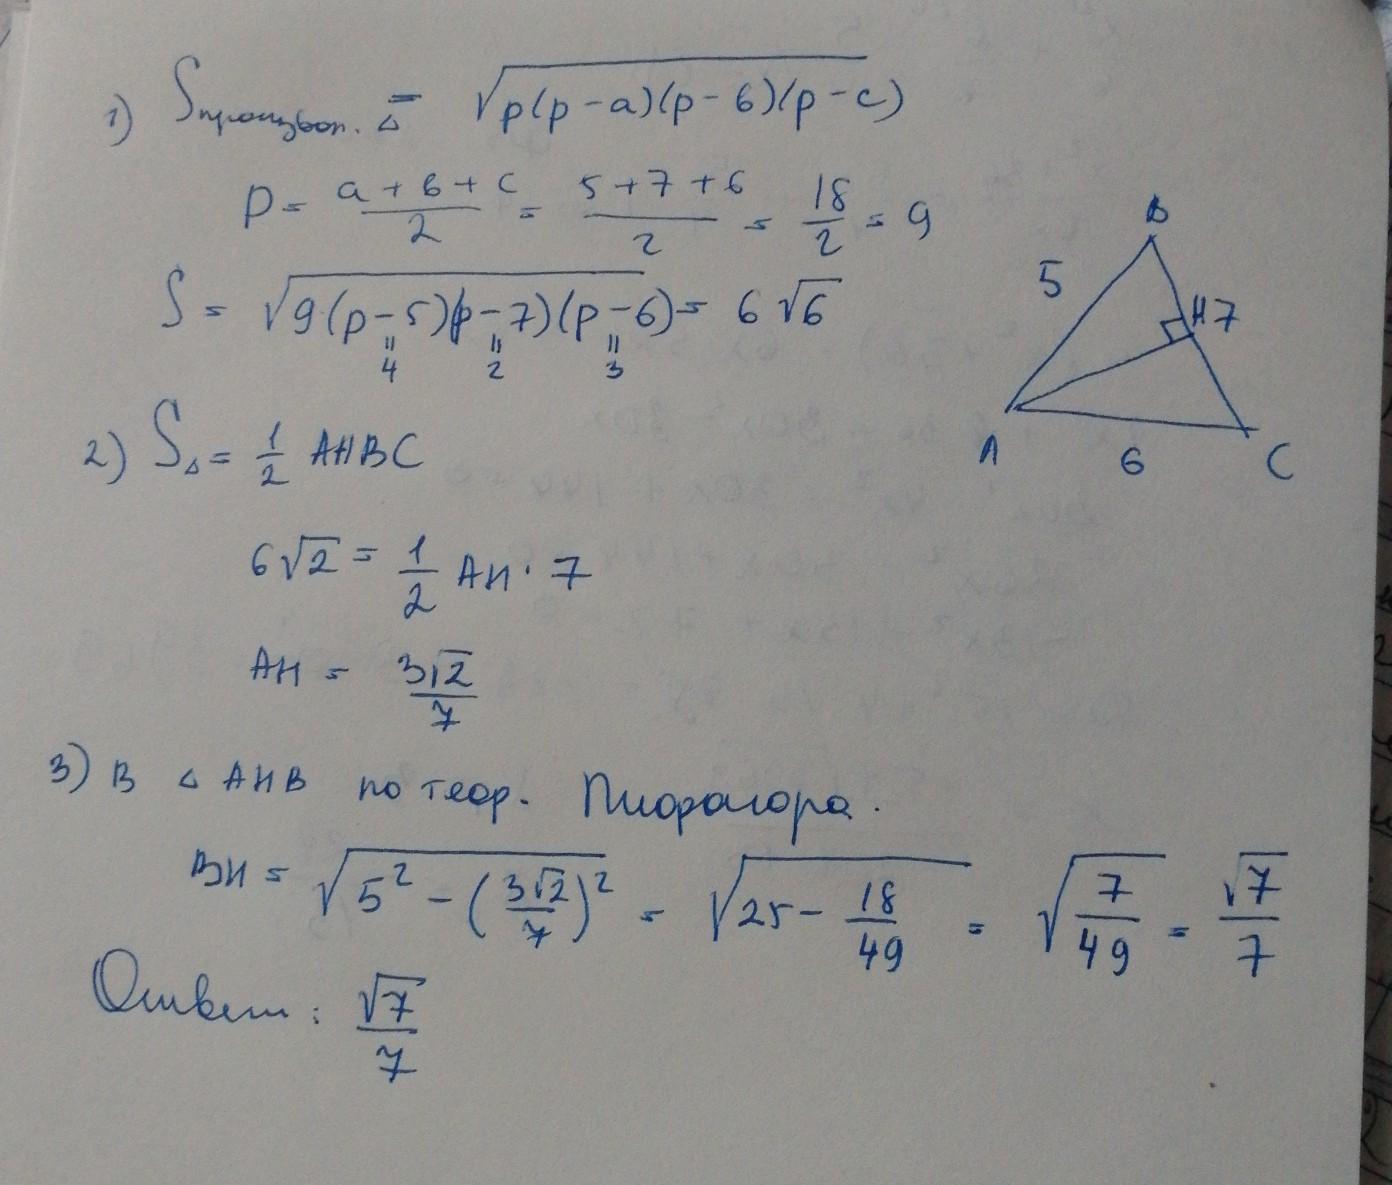 1) Sпроизвол. Δ = √p(p-a)(p-б)(p-c)
p = a+б+c/2 = 5+7+6/2 = 18/2 = 9
S = √9(p-5)(p-7)(p-6) = 6√6
" " "
4 2 3
B
5
H 7
A
6
C
2) SΔ = 1/2 AHBC
6√2 = 1/2 AH · 7
AH = 3√2/7
3) В Δ AHB по теор. Пифагора.
BH = √5² - (3√2/7)² = √25 - 18/49 = √7/49 = √7/7
Ответ: √7/7